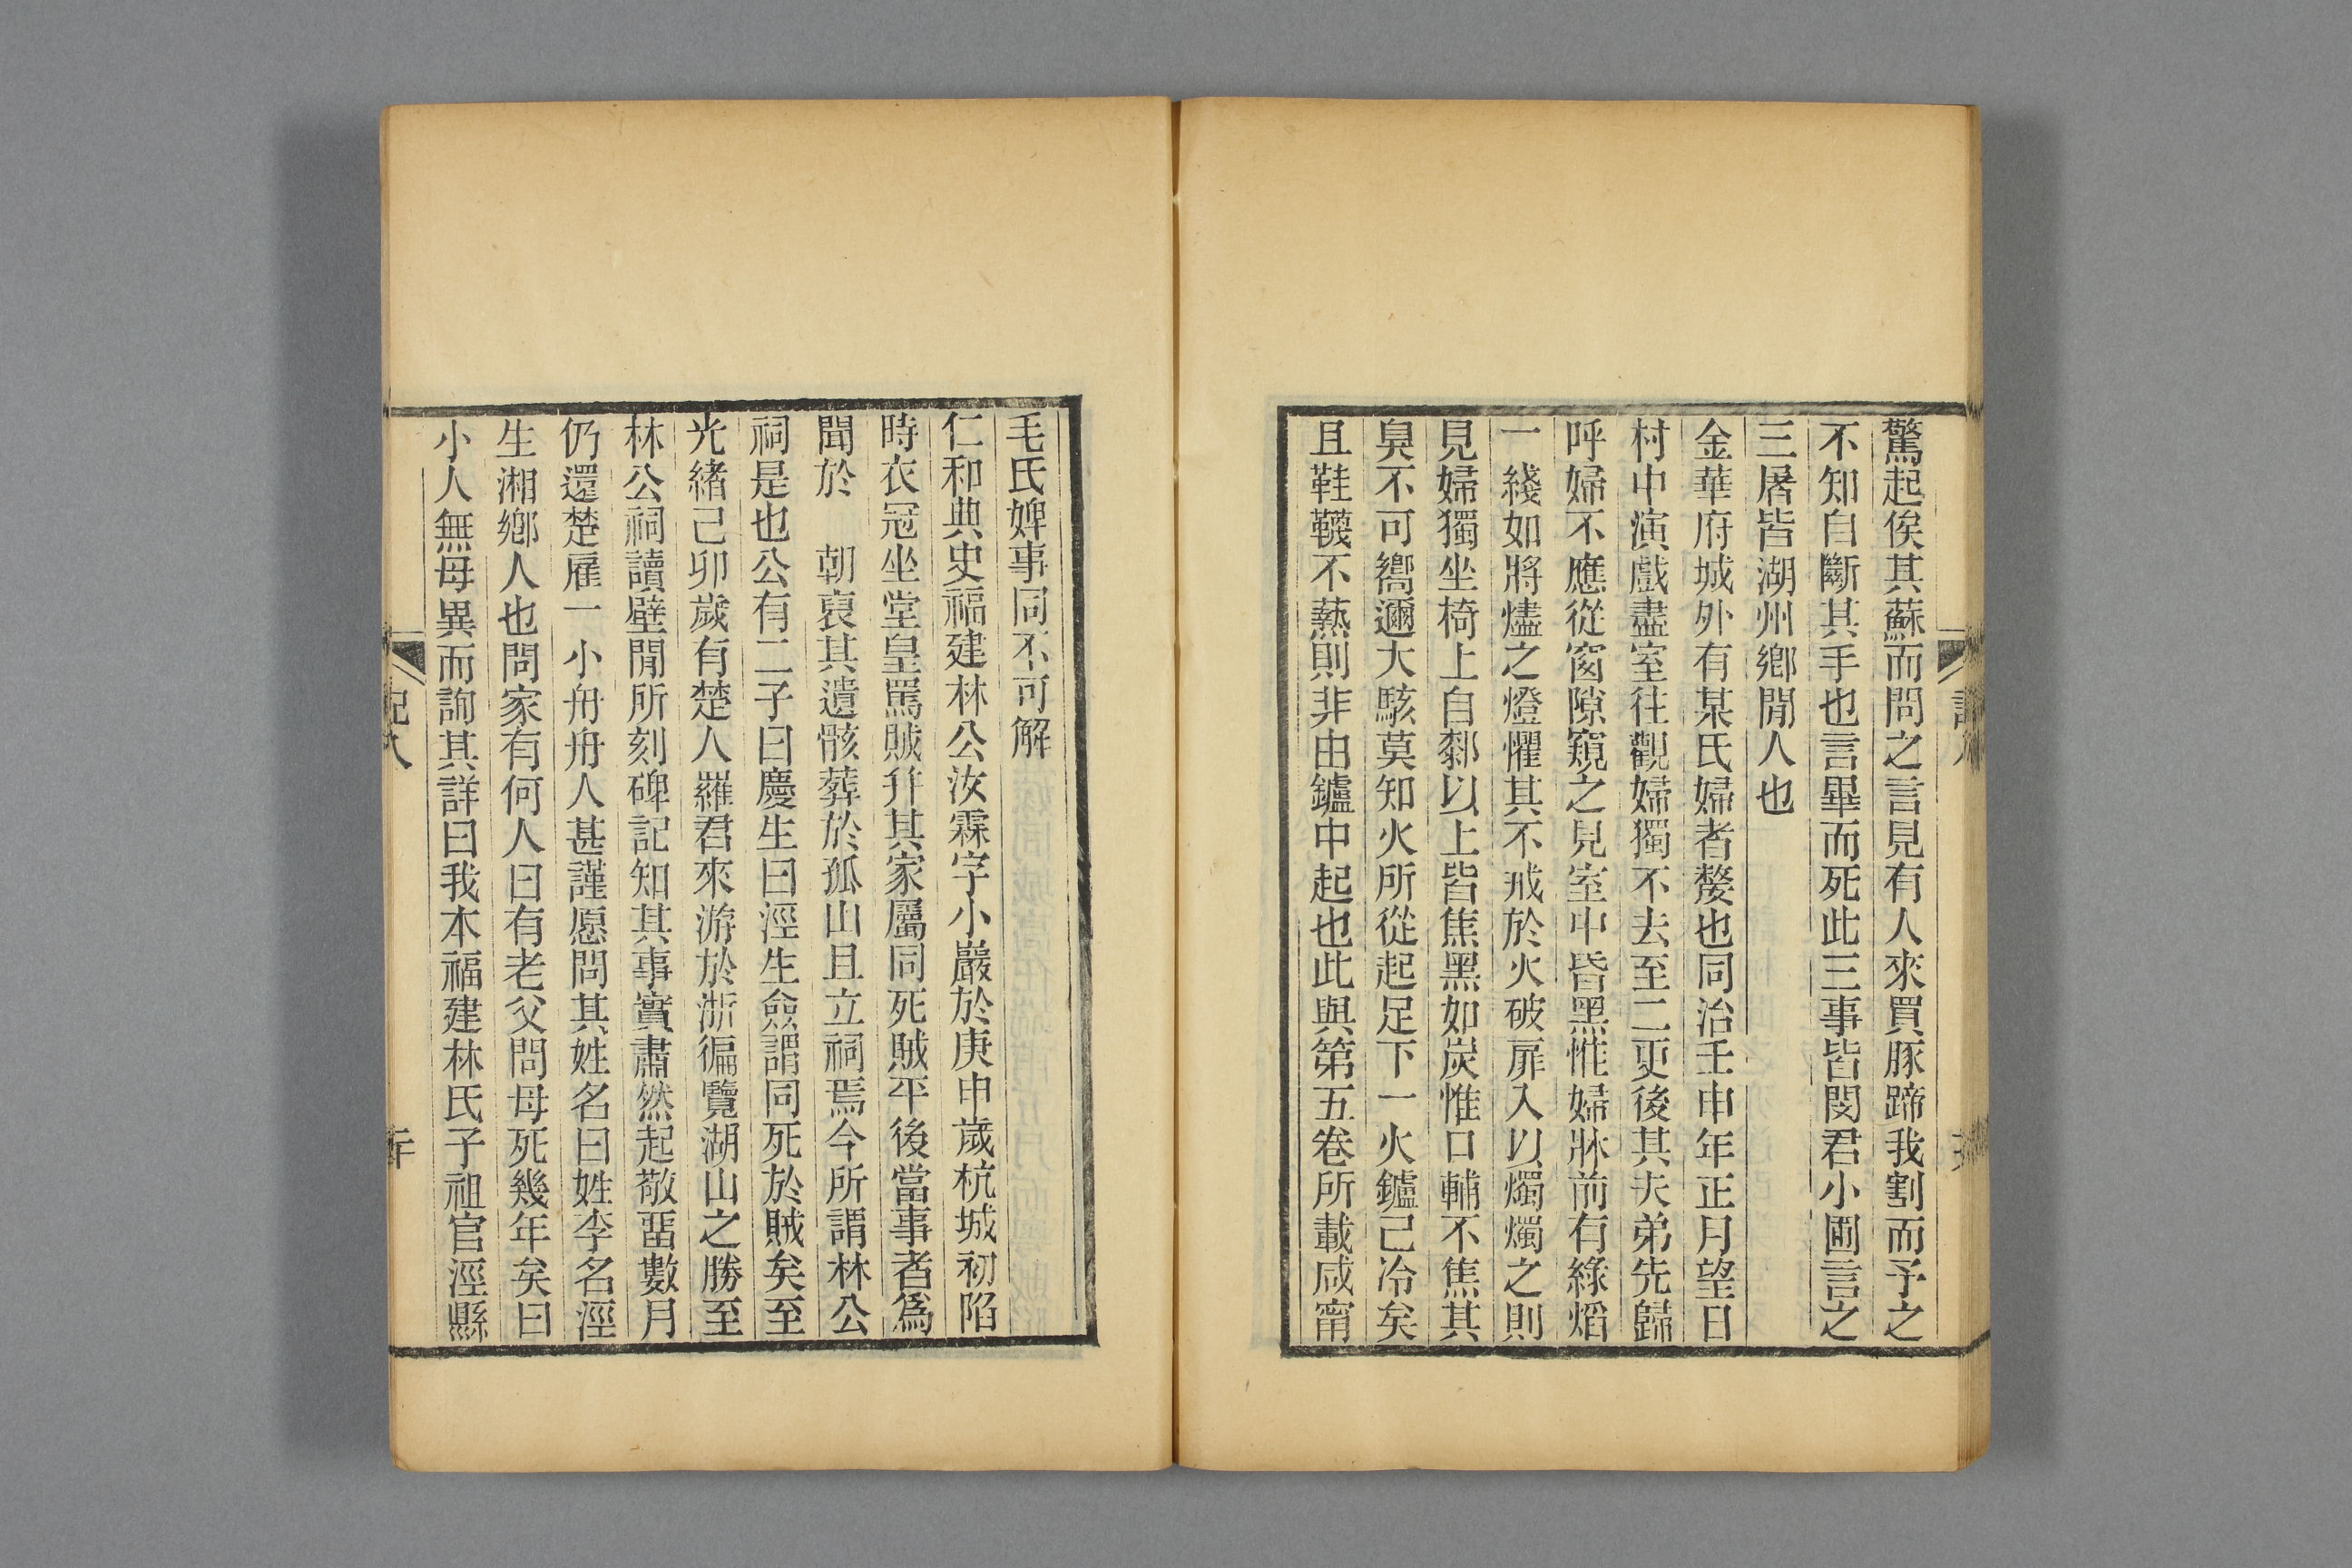 驚起俟其蘇而問之言見有人來買豚蹄我割而予之
不知自斷其手也言畢而死此三事皆閔君小圃言之
三屠皆湖州鄉閒人也
金華府城外有某氏婦者嫠也同治壬申年正月望日
村中演戲盡室往觀婦獨不去至二更後其夫弟先歸
呼婦不應從窗隙窺之見室中昏黑惟婦牀前有綠熖
一綫如將燼之燈懼其不戒於火破扉入以燭燭之則
見婦獨坐椅上自厀以上皆焦黑如炭惟口輔不焦其
臭不可嚮邇大駭莫知火所從起足下一火鑪已冷矣
且鞋韈不爇則非由鑪中起也此與第五卷所載咸甯
毛氏婢事同不可解
仁和典史福建林公汝霖字小巖於庚申歲杭城初陷
時衣冠坐堂皇罵賊幷其家屬同死賊平後當事者爲
聞於　朝裒其遺骸葬於孤山且立祠焉今所謂林公
祠是也公有二子曰慶生曰涇生僉謂同死於賊矣至
光緒己卯歲有楚人羅君來游於浙徧覽湖山之勝至
林公祠讀壁閒所刻碑記知其事實肅然起敬畱數月
仍還楚雇一小舟舟人甚謹愿問其姓名曰姓李名涇
生湘鄉人也問家有何人曰有老父問母死幾年矣曰
小人無母異而詢其詳曰我本福建林氏子祖官涇縣
記八